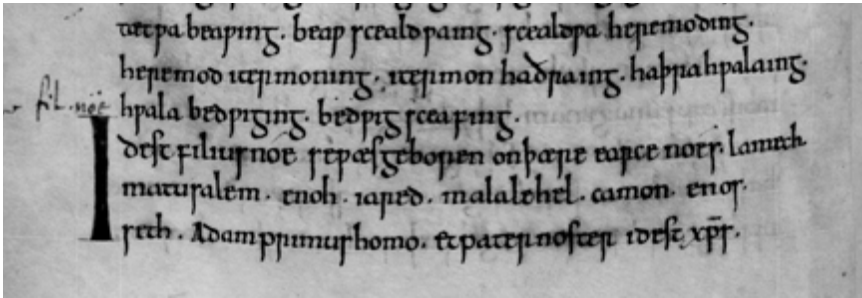 tætƿa beaƿing. beaƿ scealdƿaing. scealdƿa heremoding.
heremod itermoning. itermon haðraing. haþra hƿalaing.
fil. noe
hƿala bedƿiging. bedƿig sceafing.
Idest filius noe se ƿæs geboren on þære earce noes. lamech
matusalem. enoh. iared. malalehel. camon. enos.
seth. Adam primus homo. et pater noster idest xp̄s.